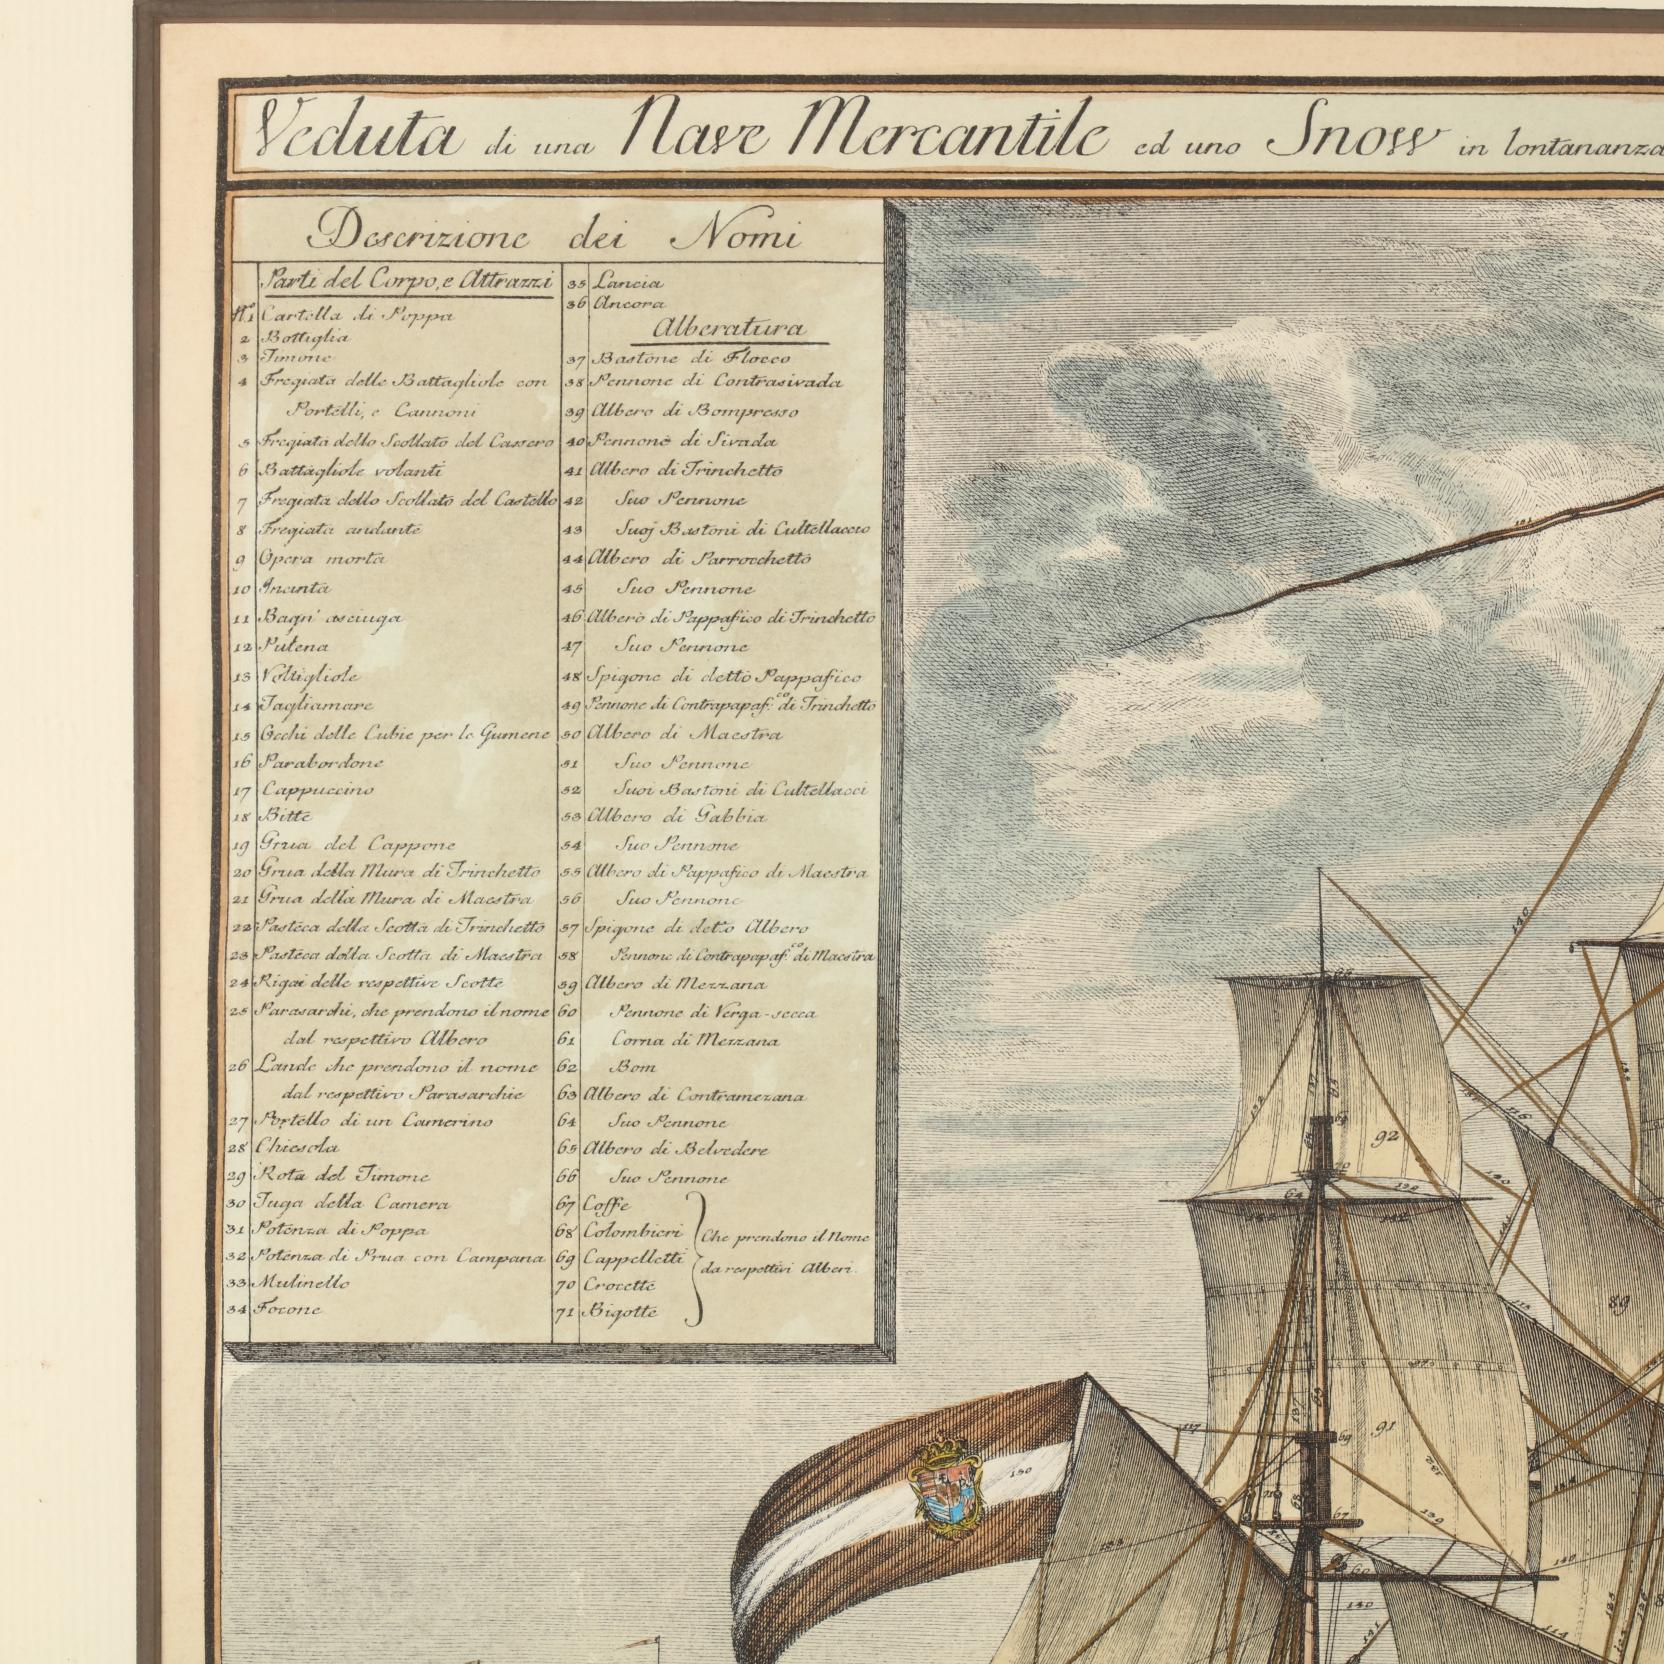 Veduta di una Nave Mercantile ed uno Snow in lontananza
Descrizione dei Nomi
Parti del Corpo, e Attrazzi
N.º 1 Cartella di Poppa
2 Bottiglia
3 Timone
4 Fregiata delle Battagliole con
Portelli, e Cannoni
5 Fregiata dello Scollato del Cassero
6 Battagliole volanti
7 Fregiata dello Scollato del Castello
8 Fregiata andante
9 Opera morta
10 Incinta
11 Bagn' asciuga
12 Pulena
13 Voltigliole
14 Tagliamare
15 Occhi delle Cubie per le Gumene
16 Parabordone
17 Cappuccino
18 Bitte
19 Grua del Cappone
20 Grua della Mura di Trinchetto
21 Grua della Mura di Maestra
22 Pasteca della Scotta di Trinchetto
23 Pasteca della Scotta di Maestra
24 Rigai delle respettive Scotte
25 Parasarchi, che prendono il nome
dal respettivo Albero
26 Lande che prendono il nome
dal respettivo Parasarchie
27 Portello di un Camerino
28 Chiesola
29 Rota del Timone
30 Tuga della Camera
31 Potenza di Poppa
32 Potenza di Prua con Campana
33 Mulinello
34 Focone
35 Lancia
36 Ancora
Alberatura
37 Bastone di Flocco
38 Pennone di Contrasivada
39 Albero di Bompresso
40 Pennone di Sivada
41 Albero di Trinchetto
42 Suo Pennone
43 Suoj Bastoni di Cultellaccio
44 Albero di Parrocchetto
45 Suo Pennone
46 Albero di Pappafico di Trinchetto
47 Suo Pennone
48 Spigone di detto Pappafico
49 Pennone di Contrapapaf.co di Trinchetto
50 Albero di Maestra
51 Suo Pennone
52 Suoi Bastoni di Cultellacci
53 Albero di Gabbia
54 Suo Pennone
55 Albero di Pappafico di Maestra
56 Suo Pennone
57 Spigone di detto Albero
58 Pennone di Contrapapaf.co di Maestra
59 Albero di Mezzana
60 Pennone di Verga-secca
61 Corna di Mezzana
62 Bom
63 Albero di Contramezana
64 Suo Pennone
65 Albero di Belvedere
66 Suo Pennone
67 Coffe
68 Colombieri
69 Cappelletti
70 Crocette
71 Bigotte
Che prendono il Nome
da respettivi Alberi.
140
92
91
89
150